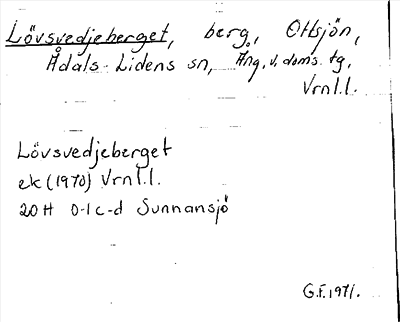 Lövsvedjeberget, berg, Ottsjön,
Ådals-Lidens sn, Ång. v. doms. tg,
Vrnl.l.
Lövsvedjeberget
ek (1970) Vrnl.l.
20H 0-1c-d Sunnansjö
G.F. 1971.